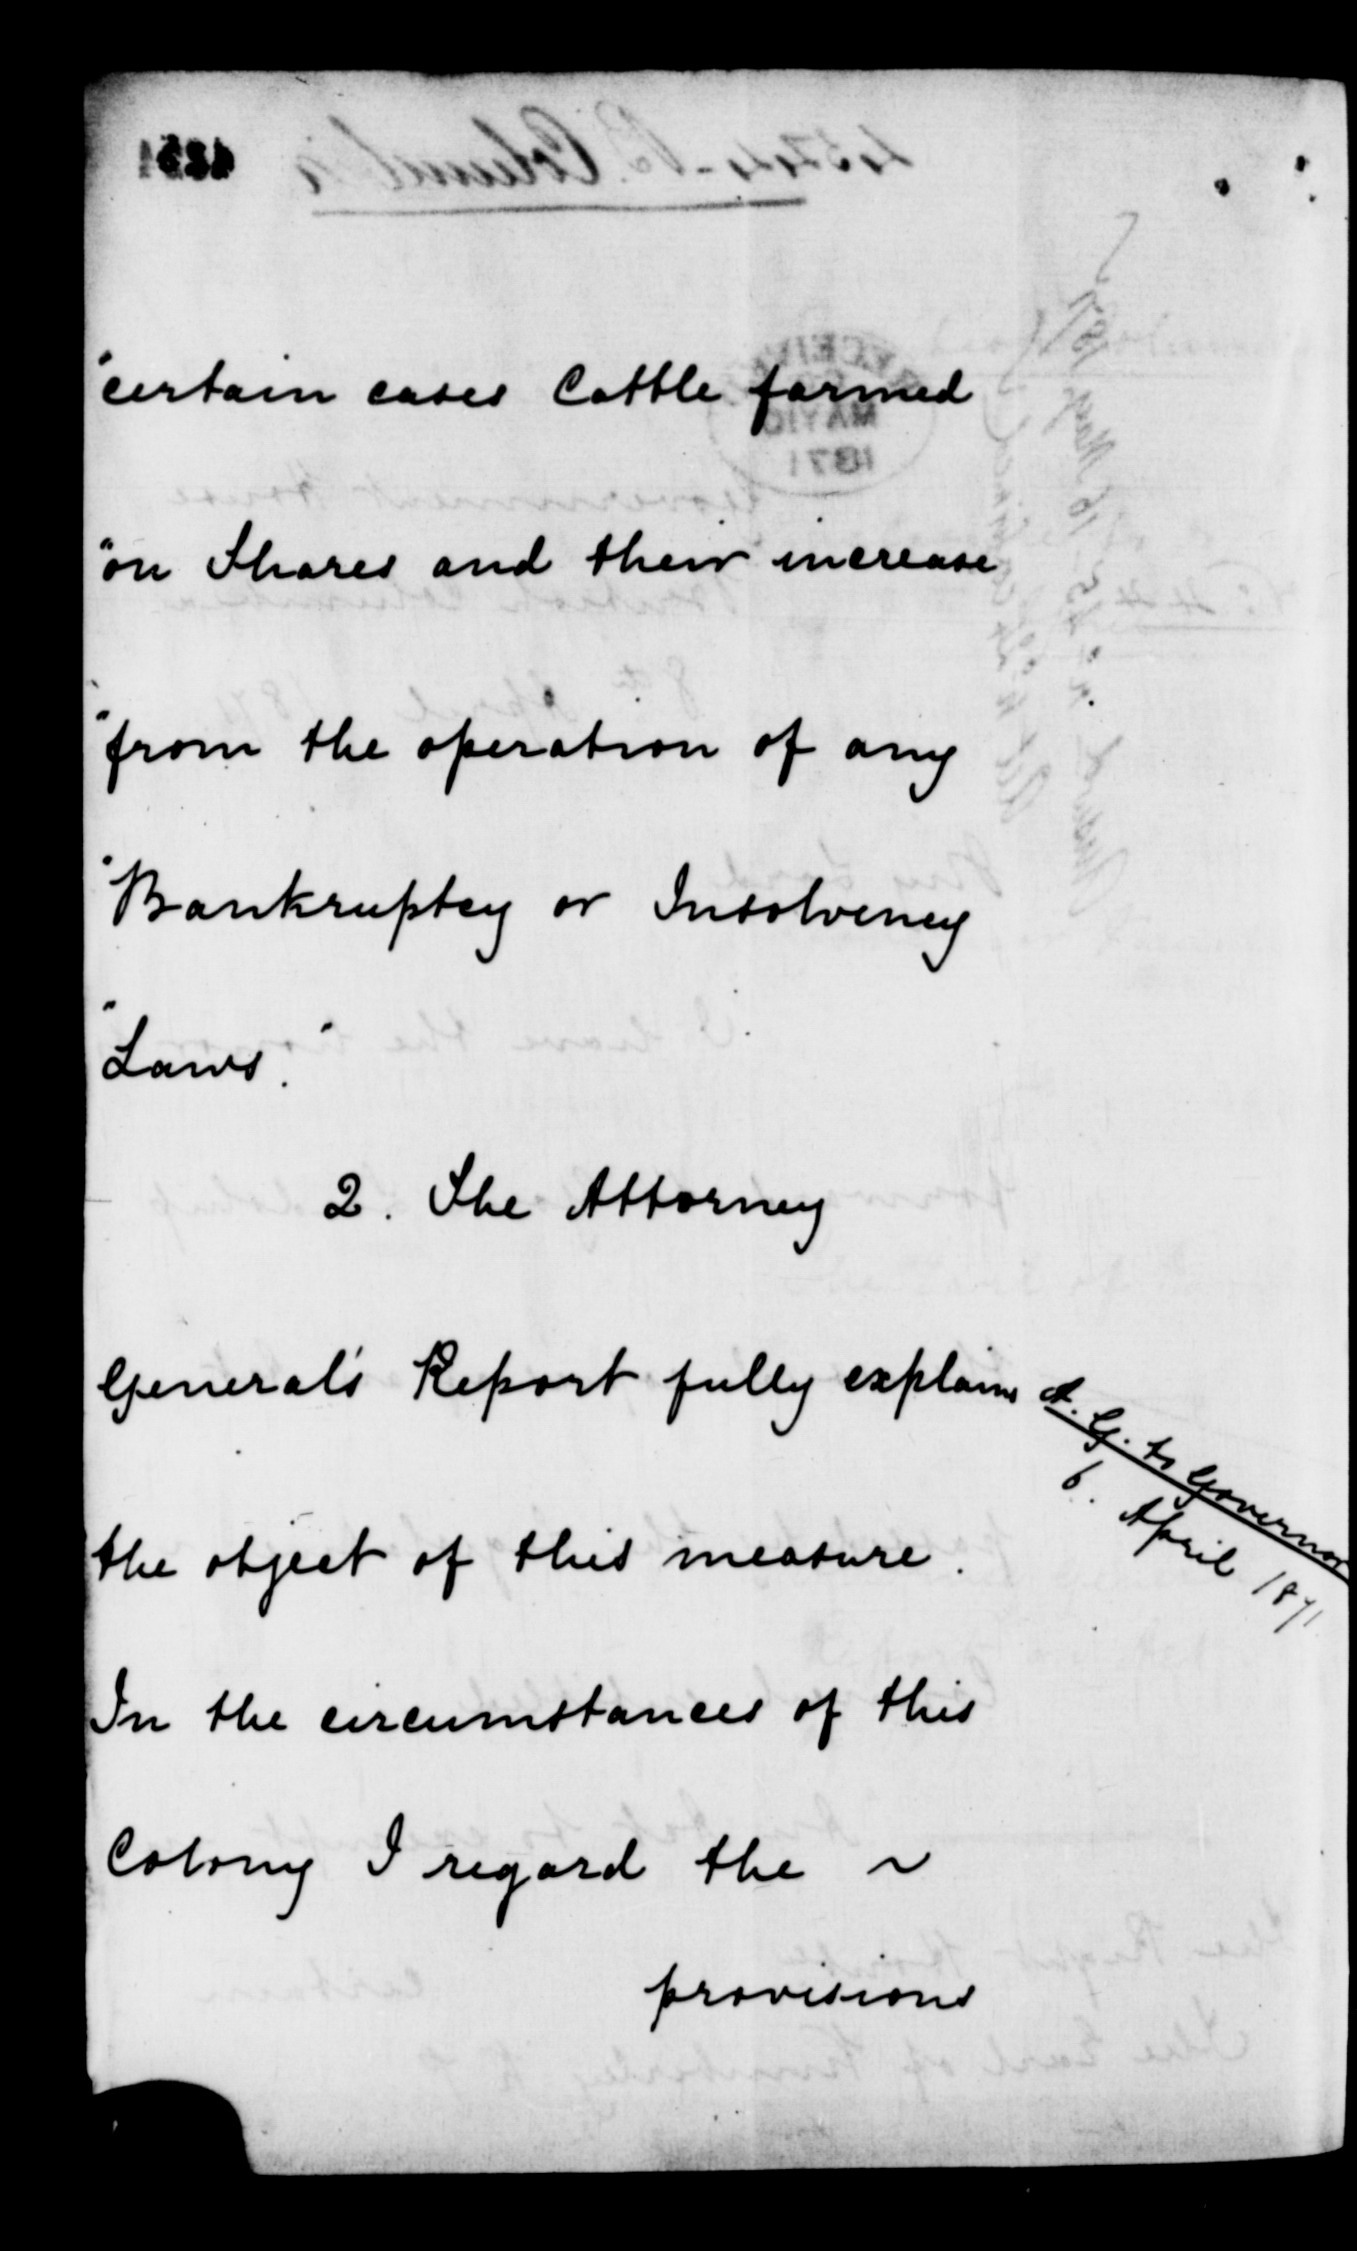 "certain cases Cattle farmed
"on Shares and their increase
"from the operation of any
"Bankruptcy or Insolvency
"Laws."
2. The Attorney
General's Report fully explains
A. G. to Governor
6. April 1871
the object of this measure.
In the circumstances of this
Colony I regard the ~
provisions